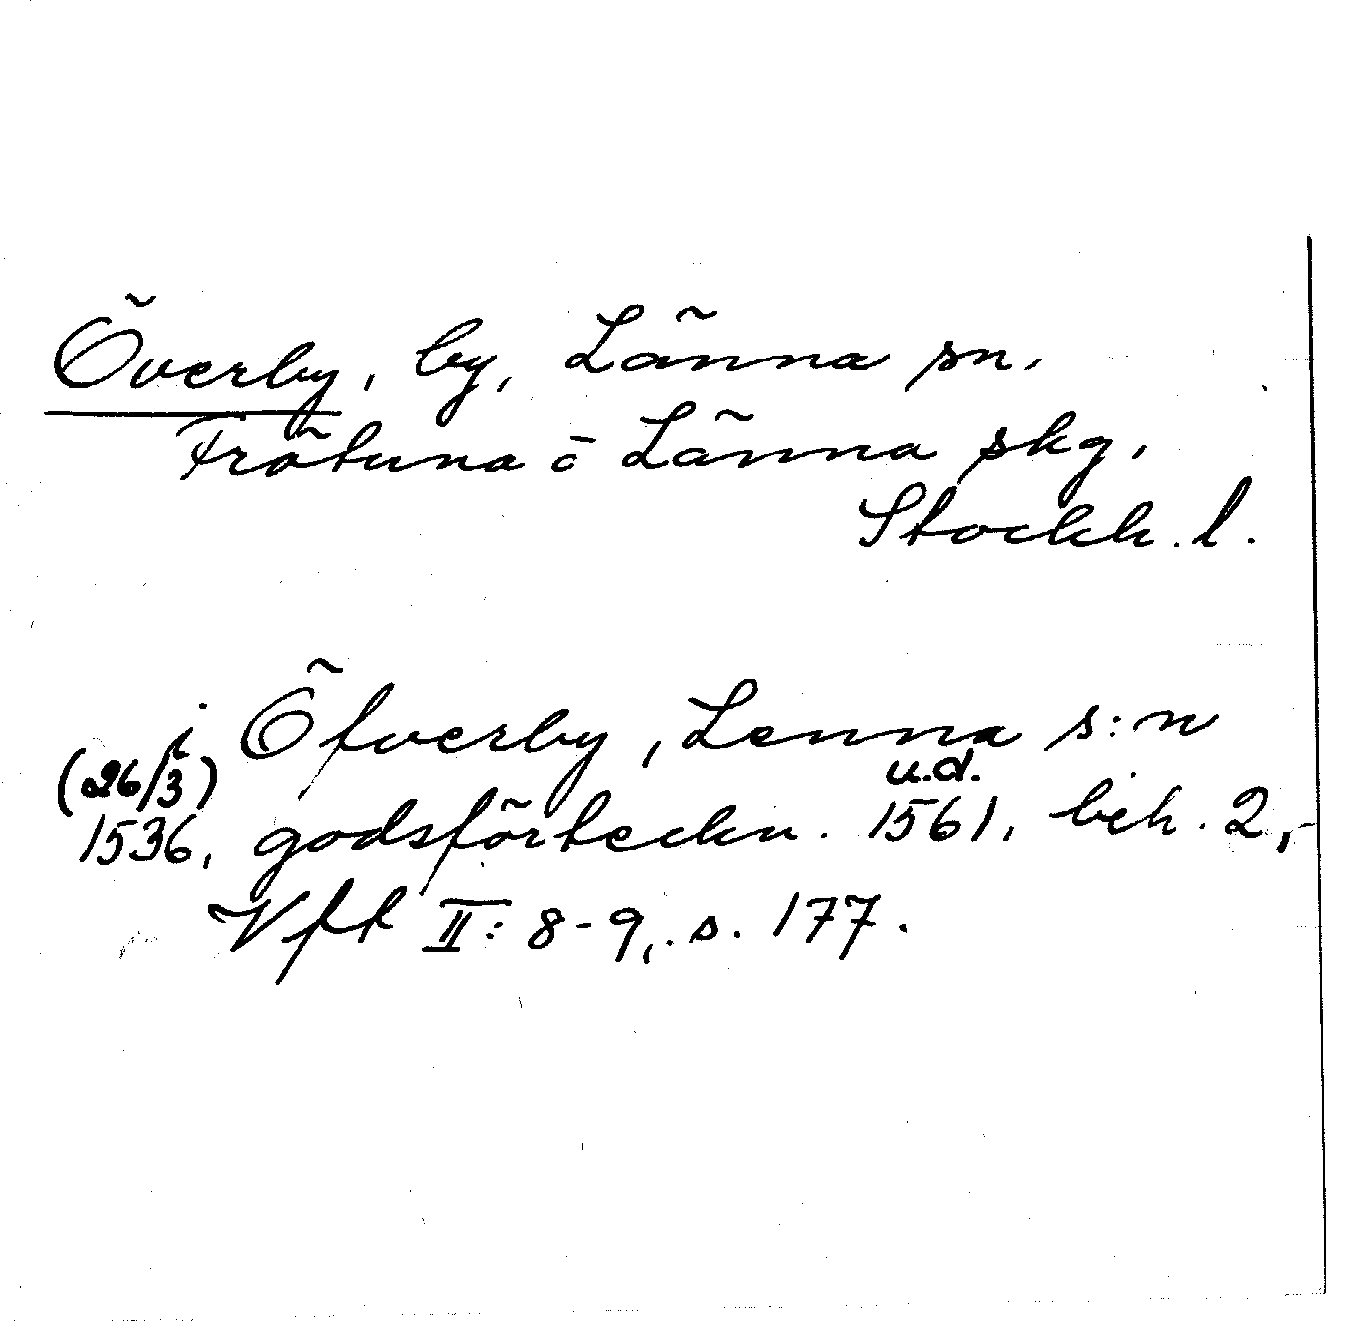 Överby, by, Länna sn.
Frötuna o Länna skg,
Stockh. l.
i Öfverby, Lenna s:n
(26/3) u.d.
1536, godsförteckn. 1561, bih. 2,
Vft II: 8-9, s. 177.